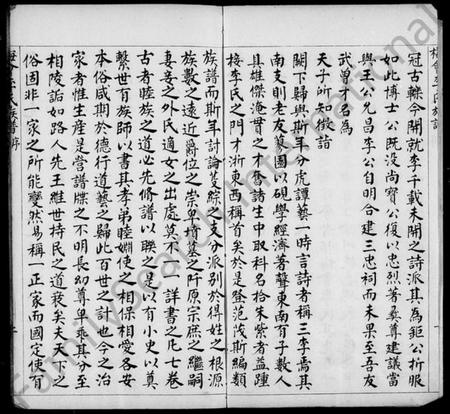 冠古轢今開就李千載未開之詩派其為鉅公折服
如此博士公既沒尚寶公復以忠烈著羲尊建議當
與王公允昌李公自明合建三忠祠而未果至吾友
武曾才名為
天子所知徵詣
闕下歸與斯年分虎譚藝一時言詩者稱三李焉其
南支則老友蒼園以硯學經濟著聲東南有子數人
其雄傑淹貫之才奮諸生中取科名拾朱紫者益踵
接李氏之門才浙東西稱首矣於是登范陵斯編類
族譜而斯年討論芟綜之支分派別於得姓之根源
族數之遠近爵位之崇卑墳墓之阡原宗庶之繼嗣
妻妾之外氏適女之出處莫不一詳書之凡七卷
古者睦族之道必先脩譜以聯之是以有小史以奠
繫世百族師以書其孝弟睦婣使之相保相愛各安
本俗咸期於德行道藝之歸此百世之計也今之治
家者惟生產是營譜牒之不明長幼尊卑乘其分至
相陵詬如路人先王維世持民之道衰矣夫天下之
俗固非一家之所能變然易稱一正家而國定使有